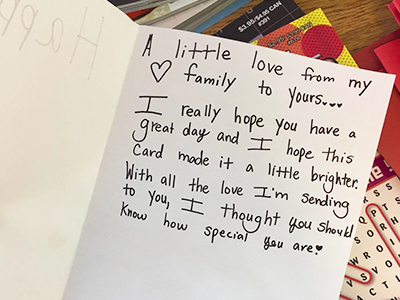 Happ
$3.95/$4.95 CAN
#391
A little love from my
♡ family to yours...
I really hope you have a
great day and I hope this
Card made it a little brighter.
With all the love I'm sending
to you, I thought you should
Know how special you are.♥